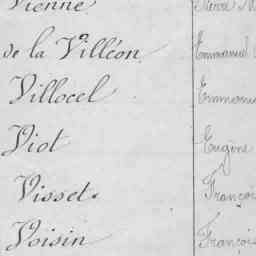 Vienne Pierre
de la Villéon Emmanuel
Villocel Emmanuel
Viot Eugène
Visset François
Voisin François